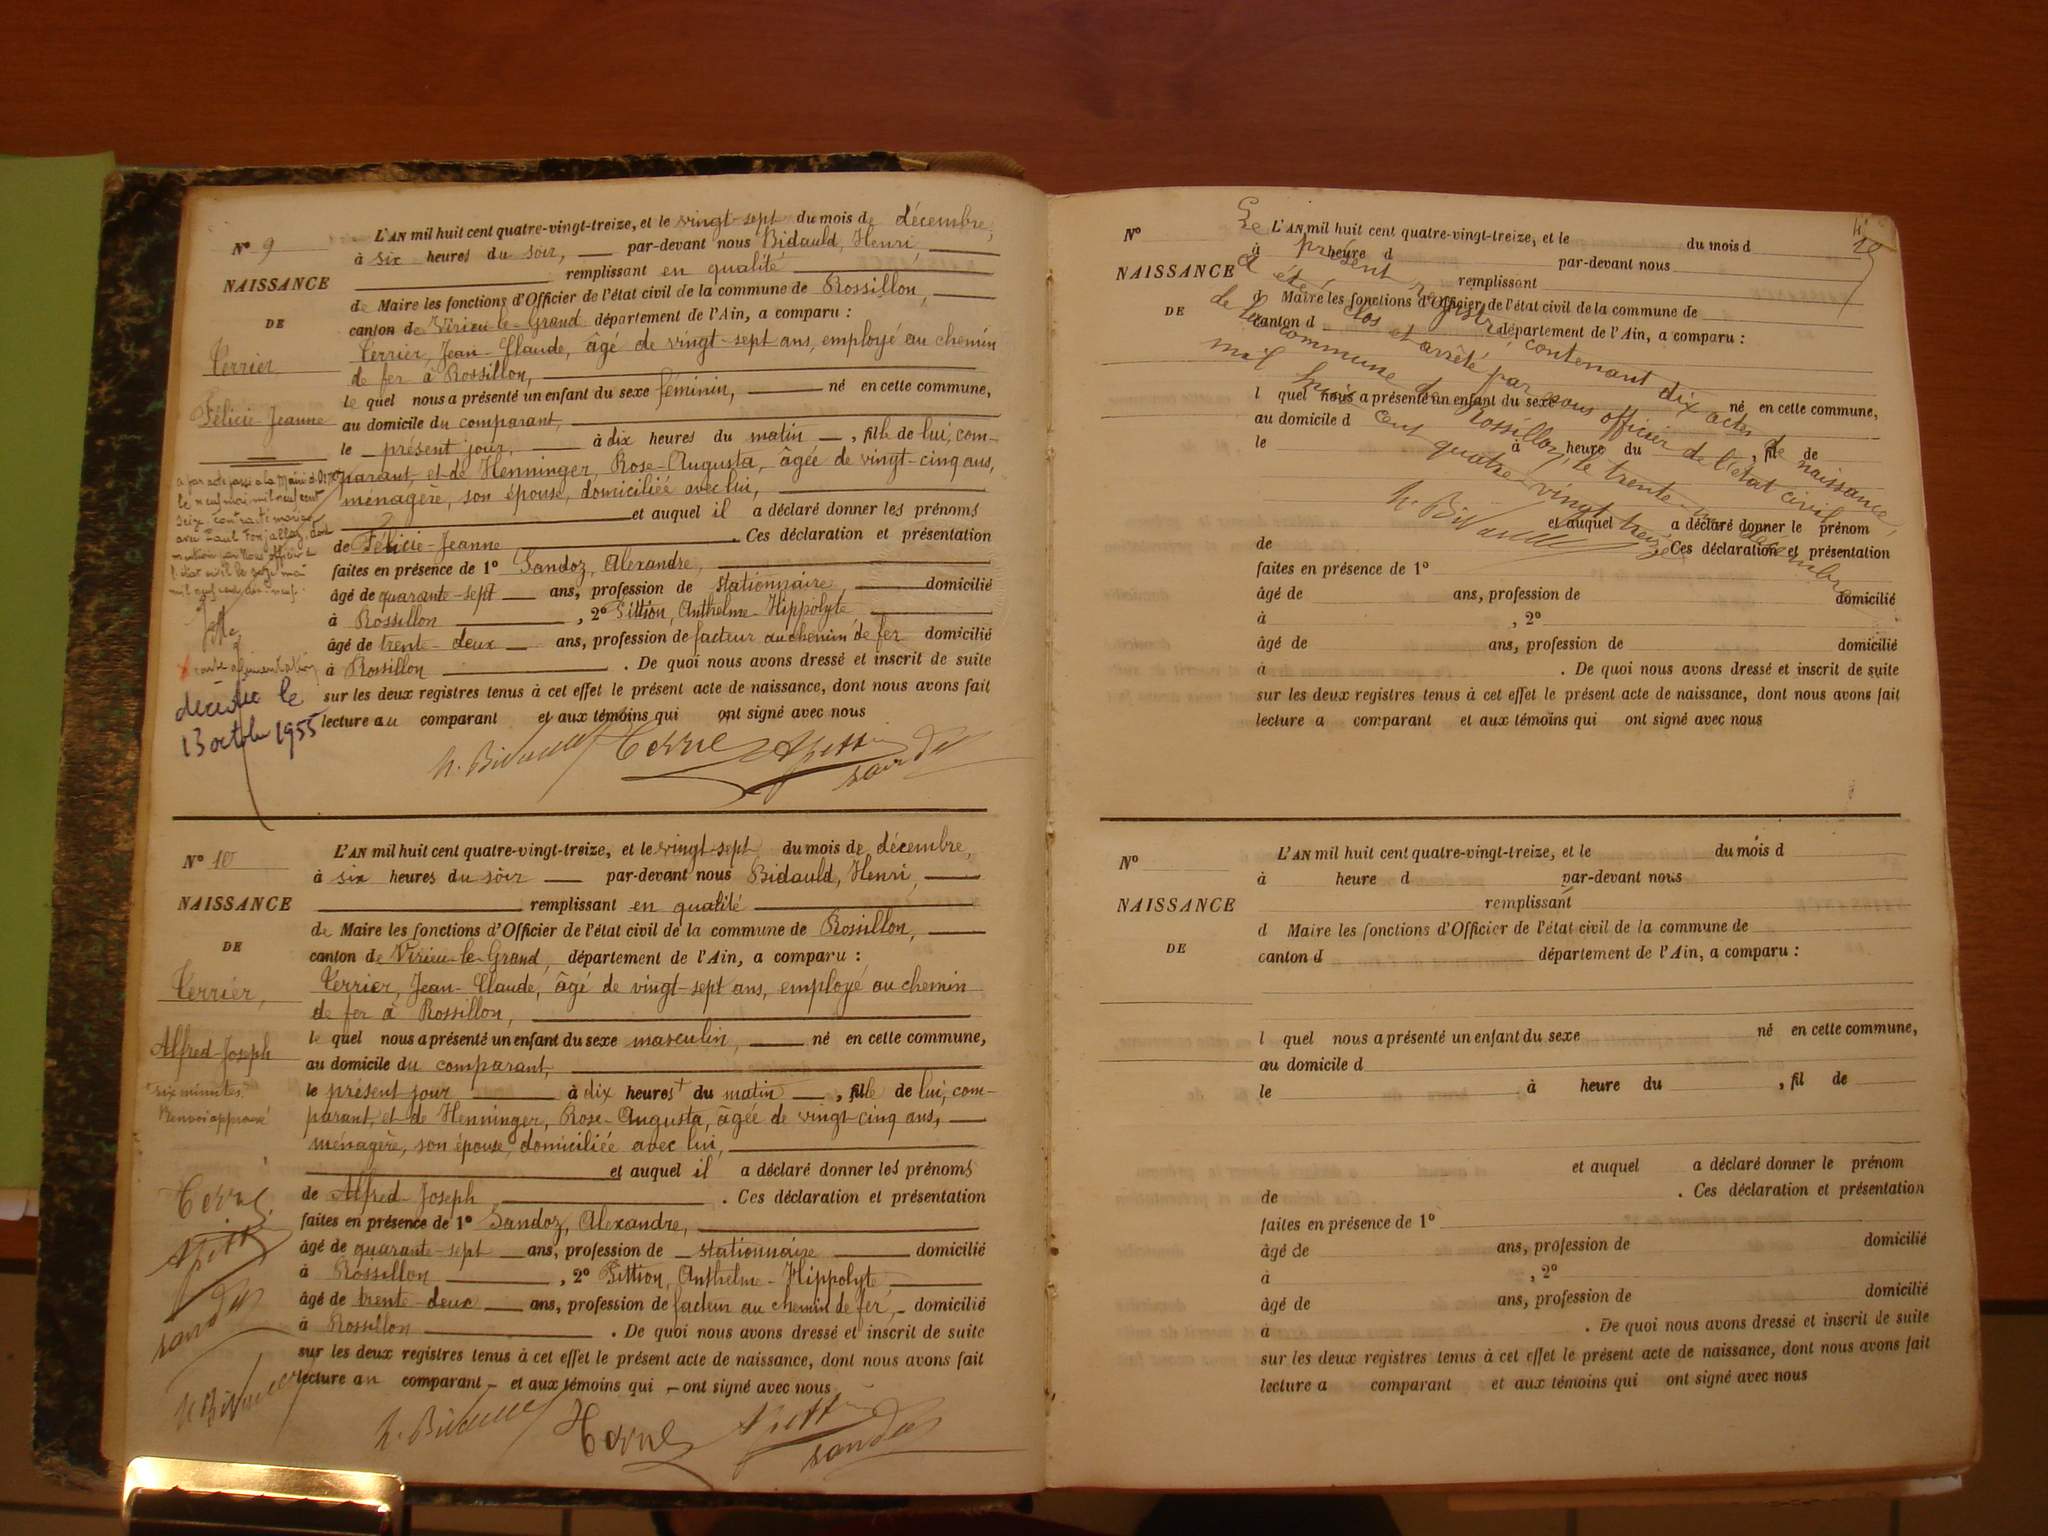 N° 9
NAISSANCE
DE
Verrier
Félicie-Jeanne
L'AN mil huit cent quatre-vingt-treize, et le vingt-sept du mois de décembre,
à six heures du soir, par-devant nous Bidauld, Henri,
remplissant en qualité
de Maire les fonctions d'Officier de l'état civil de la commune de Rossillon,
canton de Virieu-le-Grand département de l'Ain, a comparu :
Verrier, Jean-Claude, âgé de vingt-sept ans, employé au chemin
de fer à Rossillon,
le quel nous a présenté un enfant du sexe féminin, né en cette commune,
au domicile du comparant,
le présent jour, à dix heures du matin, fille de lui, com-
parant, et de Henninger, Rose-Augusta, âgée de vingt-cinq ans,
ménagère, son épouse, domiciliée avec lui,
et auquel il a déclaré donner les prénoms
de Félicie-Jeanne. Ces déclaration et présentation
faites en présence de 1° Sandoz, Alexandre,
âgé de quarante-sept ans, profession de stationnaire, domicilié
à Rossillon, 2° Pittion, Anthelme-Hippolyte,
âgé de trente-deux ans, profession de facteur au chemin de fer domicilié
à Rossillon. De quoi nous avons dressé et inscrit de suite
sur les deux registres tenus à cet effet le présent acte de naissance, dont nous avons fait
lecture au comparant et aux témoins qui ont signé avec nous
a par acte passé a la Mairie
le neuf mai mil neuf cent
seize contracté mariage
avec Paul Fonjallaz, dont
mention par Nous officier de
l'état civil le seize mai
mil neuf cent dix-neuf.
carte alimentation
décédée le
13 octobre 1955
H. Bidauld
sandoz
N° 10
NAISSANCE
DE
Verrier,
Alfred-Joseph
L'AN mil huit cent quatre-vingt-treize, et le vingt-sept du mois de décembre,
à six heures du soir par-devant nous Bidauld, Henri,
remplissant en qualité
de Maire les fonctions d'Officier de l'état civil de la commune de Rossillon,
canton de Virieu-le-Grand, département de l'Ain, a comparu :
Verrier, Jean-Claude, âgé de vingt-sept ans, employé au chemin
de fer à Rossillon,
le quel nous a présenté un enfant du sexe masculin, né en cette commune,
au domicile du comparant,
le présent jour à dix heures + du matin, fils de lui, com-
parant, et de Henninger, Rose-Augusta, âgée de vingt-cinq ans,
ménagère, son épouse, domiciliée avec lui,
et auquel il a déclaré donner les prénoms
de Alfred-Joseph. Ces déclaration et présentation
faites en présence de 1° Sandoz, Alexandre,
âgé de quarante-sept ans, profession de stationnaire domicilié
à Rossillon, 2° Pittion, Anthelme-Hippolyte,
âgé de trente-deux ans, profession de facteur au chemin de fer, domicilié
à Rossillon. De quoi nous avons dressé et inscrit de suite
sur les deux registres tenus à cet effet le présent acte de naissance, dont nous avons fait
lecture au comparant et aux témoins qui ont signé avec nous
+ six minutes
Renvoi approuvé
sandoz
H. Bidauld
H. Bidauld
sandoz
10
Le présent registre, contenant dix actes de naissance,
a été clos et arrêté par nous officier de l'état civil
de la commune de Rossillon, le trente-un décembre
mil huit cent quatre-vingt-treize
H. Bidauld
N°
NAISSANCE
DE
L'AN mil huit cent quatre-vingt-treize, et le du mois d
à heure d par-devant nous
remplissant
d Maire les fonctions d'Officier de l'état civil de la commune de
canton d département de l'Ain, a comparu :
l quel nous a présenté un enfant du sexe né en cette commune,
au domicile d
le à heure du, fil de
et auquel a déclaré donner le prénom
de. Ces déclaration et présentation
faites en présence de 1°
âgé de ans, profession de domicilié
à, 2°
âgé de ans, profession de domicilié
à. De quoi nous avons dressé et inscrit de suite
sur les deux registres tenus à cet effet le présent acte de naissance, dont nous avons fait
lecture a comparant et aux témoins qui ont signé avec nous
N°
NAISSANCE
DE
L'AN mil huit cent quatre-vingt-treize, et le du mois d
à heure d par-devant nous
remplissant
d Maire les fonctions d'Officier de l'état civil de la commune de
canton d département de l'Ain, a comparu :
l quel nous a présenté un enfant du sexe né en cette commune,
au domicile d
le à heure du, fil de
et auquel a déclaré donner le prénom
de. Ces déclaration et présentation
faites en présence de 1°
âgé de ans, profession de domicilié
à, 2°
âgé de ans, profession de domicilié
à. De quoi nous avons dressé et inscrit de suite
sur les deux registres tenus à cet effet le présent acte de naissance, dont nous avons fait
lecture a comparant et aux témoins qui ont signé avec nous